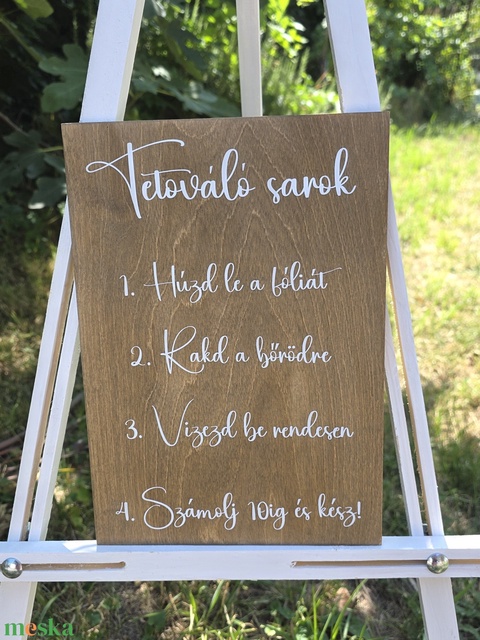 Tetováló sarok
1. Húzd le a fóliát
2. Rakd a bőrödre
3. Vizezd be rendesen
4. Számolj 10ig és kész!
meska